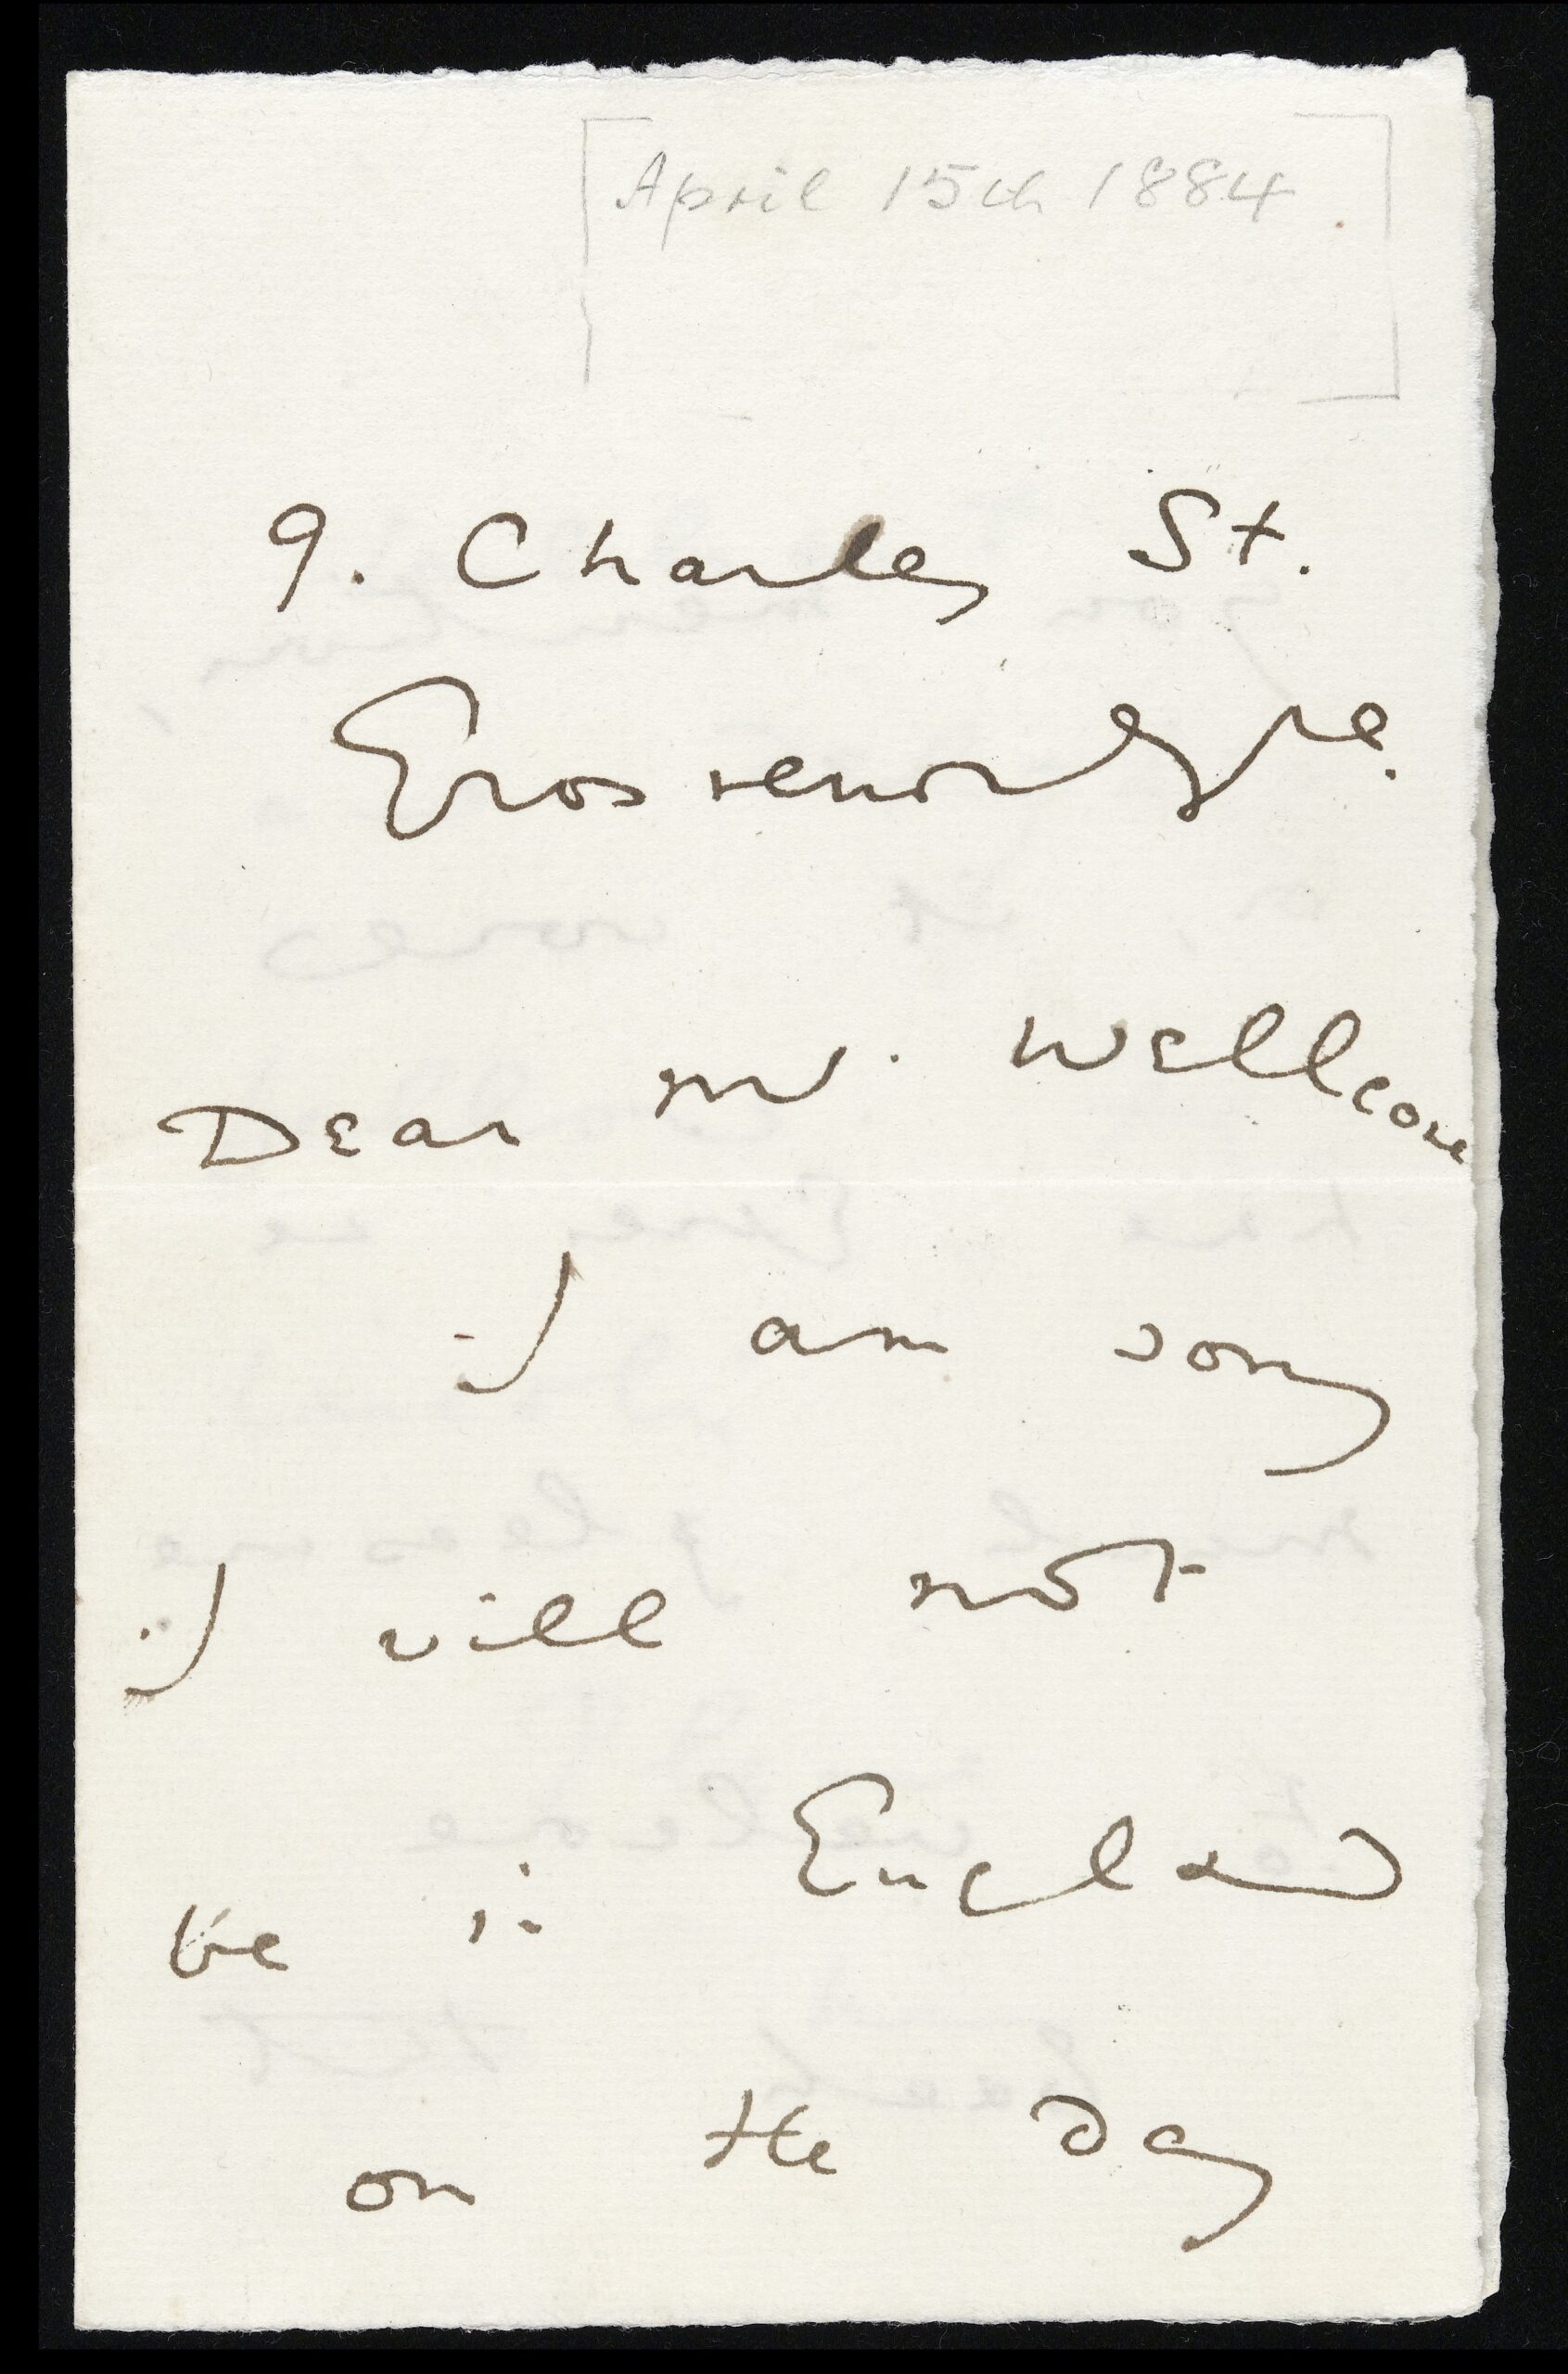 [April 15th 1884.]
9. Charles St.
Grosvenor Sqre.
Dear Mr. Wellcome
I am sorry
I will not
be in England
on the day